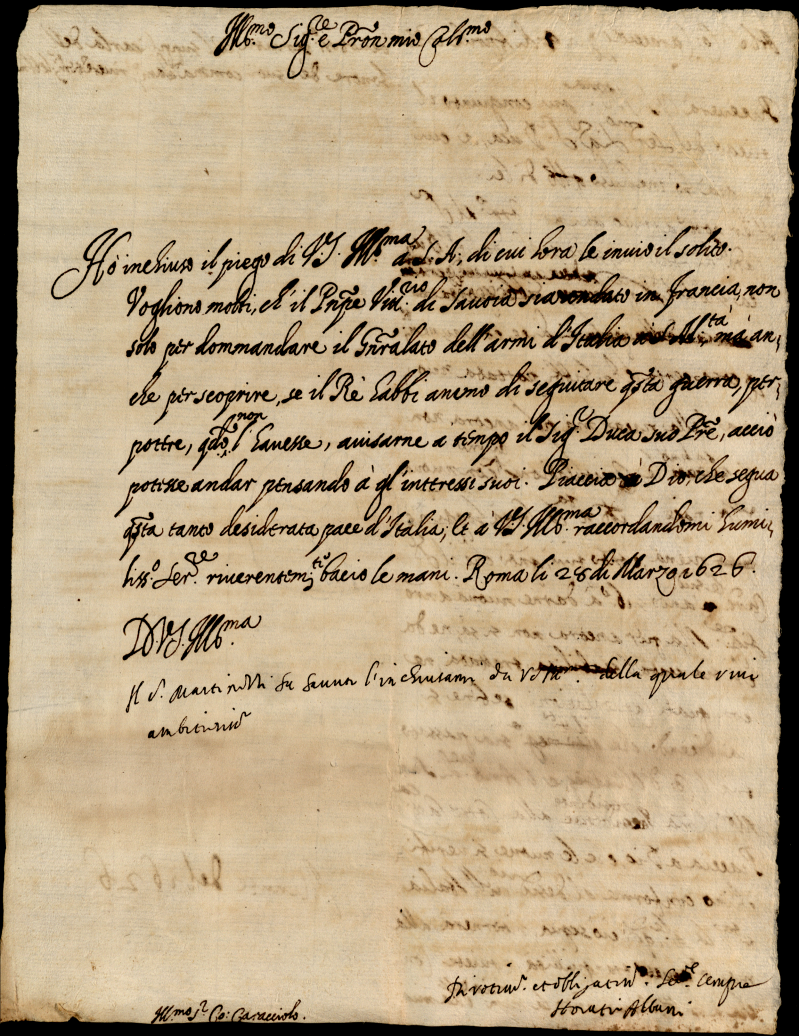 Ill.mo Sig.re e Prōn mio Col.mo
Hò inchiuso il piego di V.S. Ill.ma a S. A., di cui hora le invio il solito.
Vogliono molti, ch' il Pnpe Vitt.rio di Savoia sia andato in Francia, non
solo per dommandare il Gnralato dell'armi d'Italia a S. M.tà, mà an,
che per scoprire, se il Rè habbi animo di seguitare qsta guerra, per
potere, qdo non l'havesse, avisarne a tempo il Sig.r Duca suo Pre, acciò
potesse andar pensando à gl'interessi suoi. Piaccia à Dio, che segua
qsta tanto desiderata pace d'Italia; et à V.S. Ill.ma raccordandomi humi,
liss.o Ser.re riverentem.te bacio le mani. Roma li 28 di Marzo 1626.
D. V.S. Ill.ma
Il S. Martinelli fa della quale vivi
Divotiss.o et obligatiss.o Se.re sempre
Horatio Albani
Ill.mo S.r Co: Caracciolo.